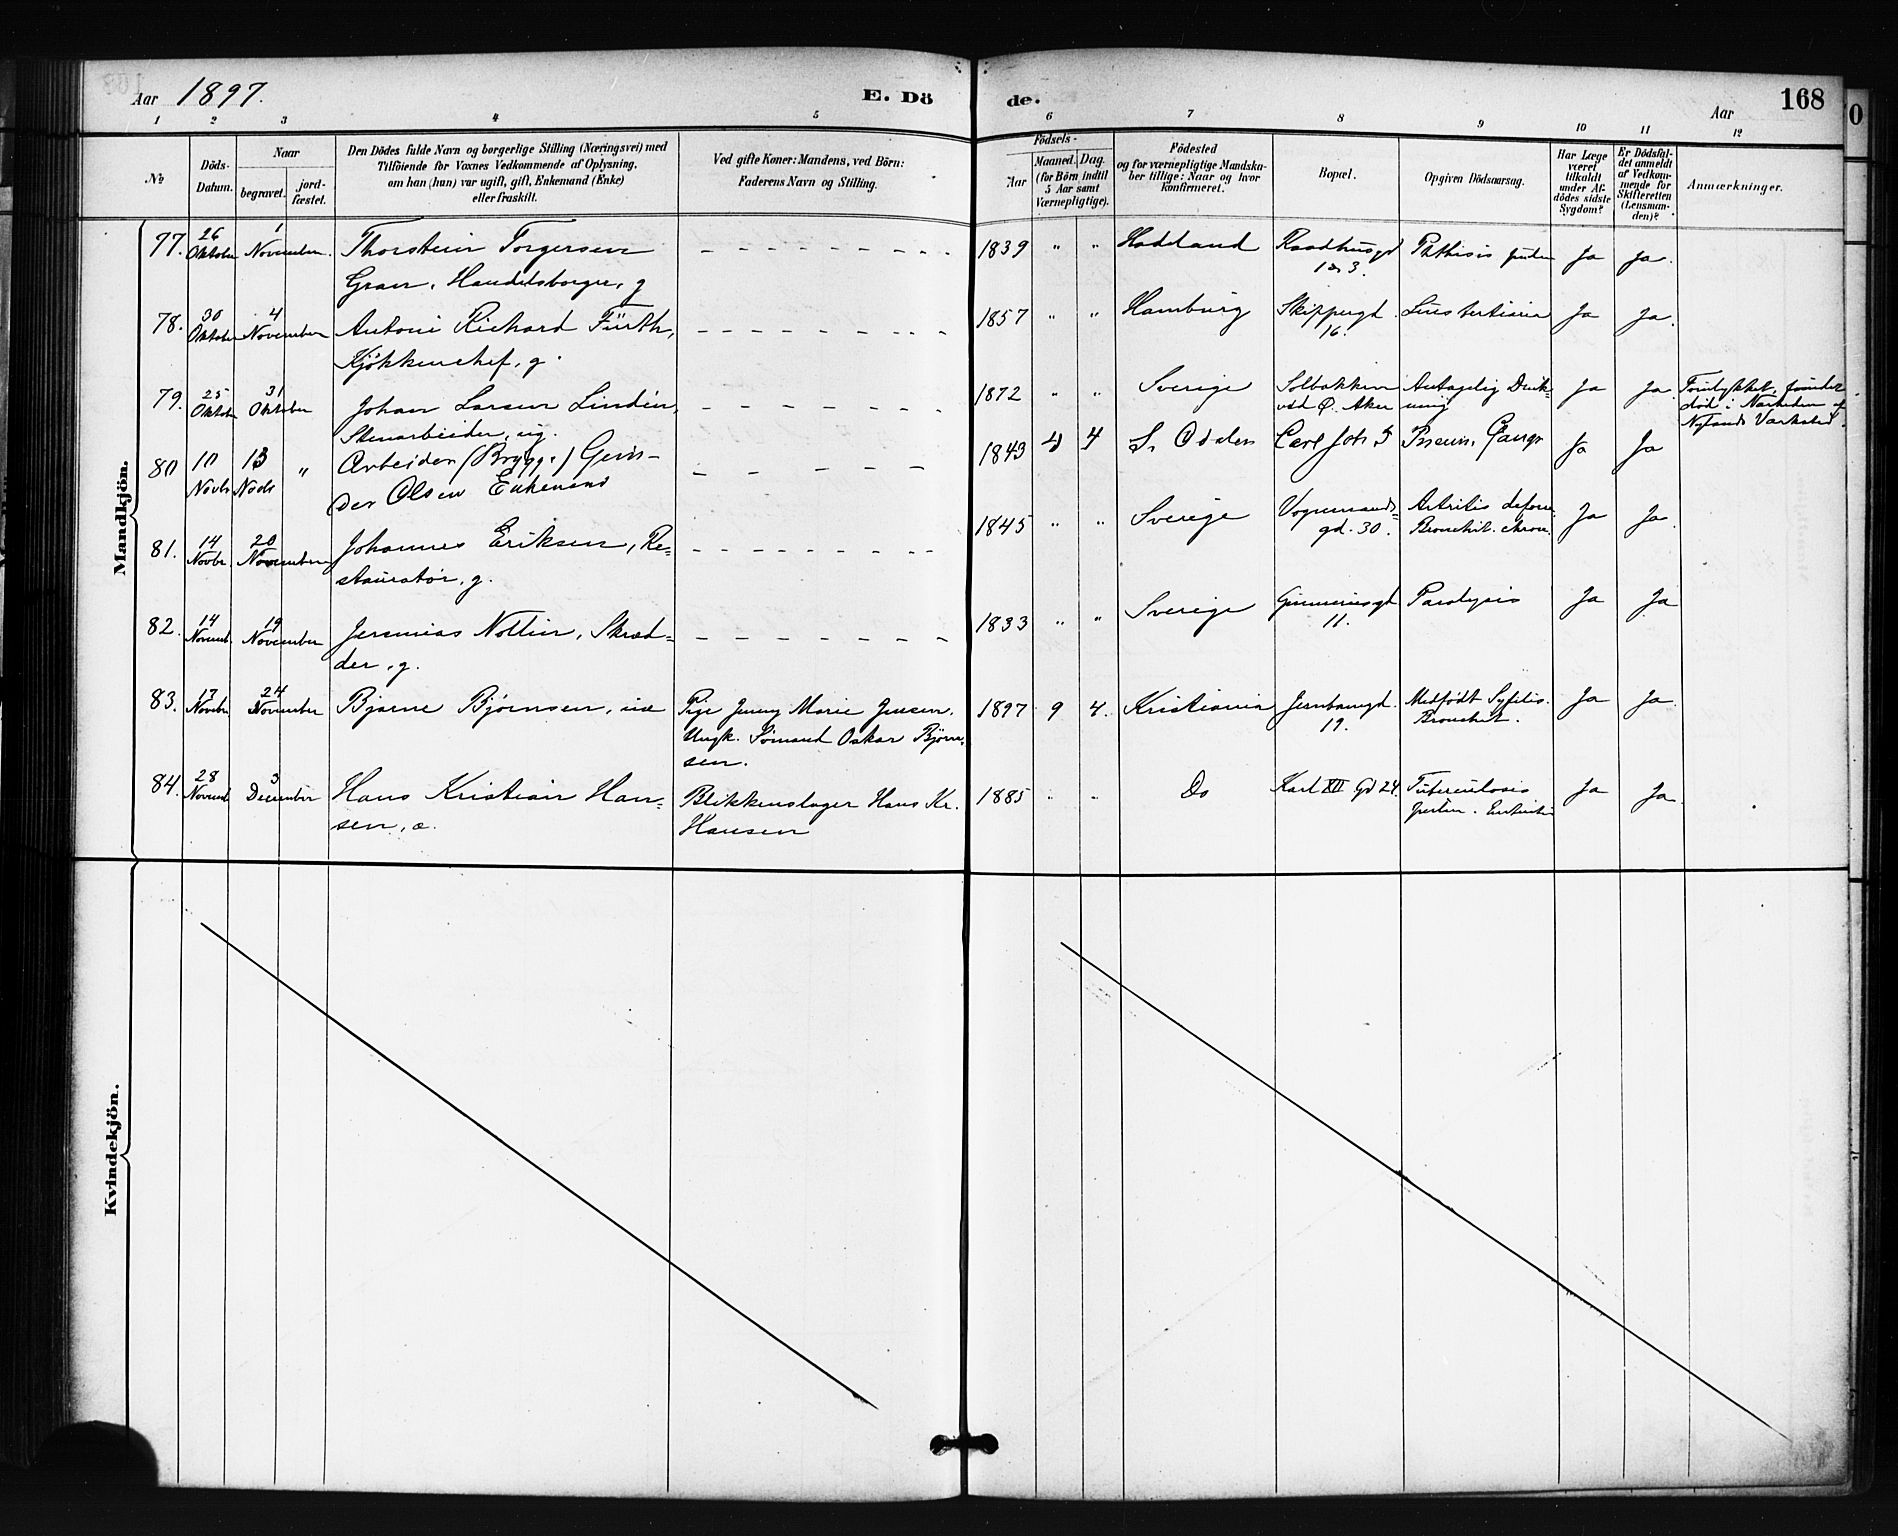 Aar 1897. E. Dö
de. Aar 168
1 2 3 4 5 6 7 8 9 10 11 12
№
Döds-
Datum.
Naar
begravet.
jord-
fæstet.
Den Dödes fulde Navn og borgerlige Stilling (Næringsvei) med
Tilföiende for Voxnes Vedkommende af Oplysning,
om han (hun) var ugift, gift, Enkemand (Enke)
eller fraskilt.
Ved gifte Koner: Mandens, ved Börn:
Faderens Navn og Stilling.
Födsels-
Aar
Maaned. Dag.
(for Börn indtil
5 Aar samt
Værnepligtige).
Födested
og for værnepligtige Mandska-
ber tillige: Naar og hvor
konfirmeret.
Bopæl.
Opgiven Dödsaarsag.
Har Læge
været
tilkaldt
under Af-
dödes sidste
Sygdom?
Er Dödsfal-
det anmeldt
af Vedkom-
mende for
Skifteretten
(Lensman-
den)?
Anmærkninger.
Mandkjön.
77. 26 Oktober 1 November Thorstein Torgersen
Gran, Handelsborger, g
1839 " " Hadeland Raadhusgd
1 & 3. Phthisis Ja Ja.
78. 30 Oktober 4 November Antoni Richard Fürth,
Kjøkkenchef, g.
1857 " " Hamburg Skippergd.
16. Lues tertiaria Ja Ja.
79. 25 Oktober 31 Oktober Johan Larsen Lindén,
Stenarbeider, ug.
1872 " " Sverige Solbakken
ved Ø. Aker Antagelig Druk-
ning Ja Ja. Forulykket, funden
død i Nærheden af
Nylands Værksted.
80 10 Novbr 13 Novbr " Arbeider (Brygge) Gun-
der Olsen Enkemand
1843 4 S. Odalen Carl Joh 5 Pneum. Gangr Ja Ja
81. 14 Novbr. 20 November Johannes Eriksen, Re-
stauratør, g.
1845 " " Sverige Vognmands-
gd. 30. Artritis deform.
Bronchit. chron. Ja Ja.
82. 14 Novemb. 19 November Jeremias Noltin, Skræd-
der, g.
1833 " " Sverige
11. Paralysis Ja Ja
83. 17 Novbr 24 November Bjarne Bjørnsen, ue
Pige Jenny Marie Jensen,
Ungk. Sømand Oskar Bjørn-
sen.
1897 9 4. Kristiania Jernbanegd.
19. Medfødt Syfilis.
Bronchit. Ja Ja.
84. 28 Novemb 3 December Hans Kristian Han-
sen, æ.
Blikkenslager Hans Kr.
Hansen
1885 " " Do Karl XII Gd 24. Tuberculosis
Ja Ja.
Kvindekjön.